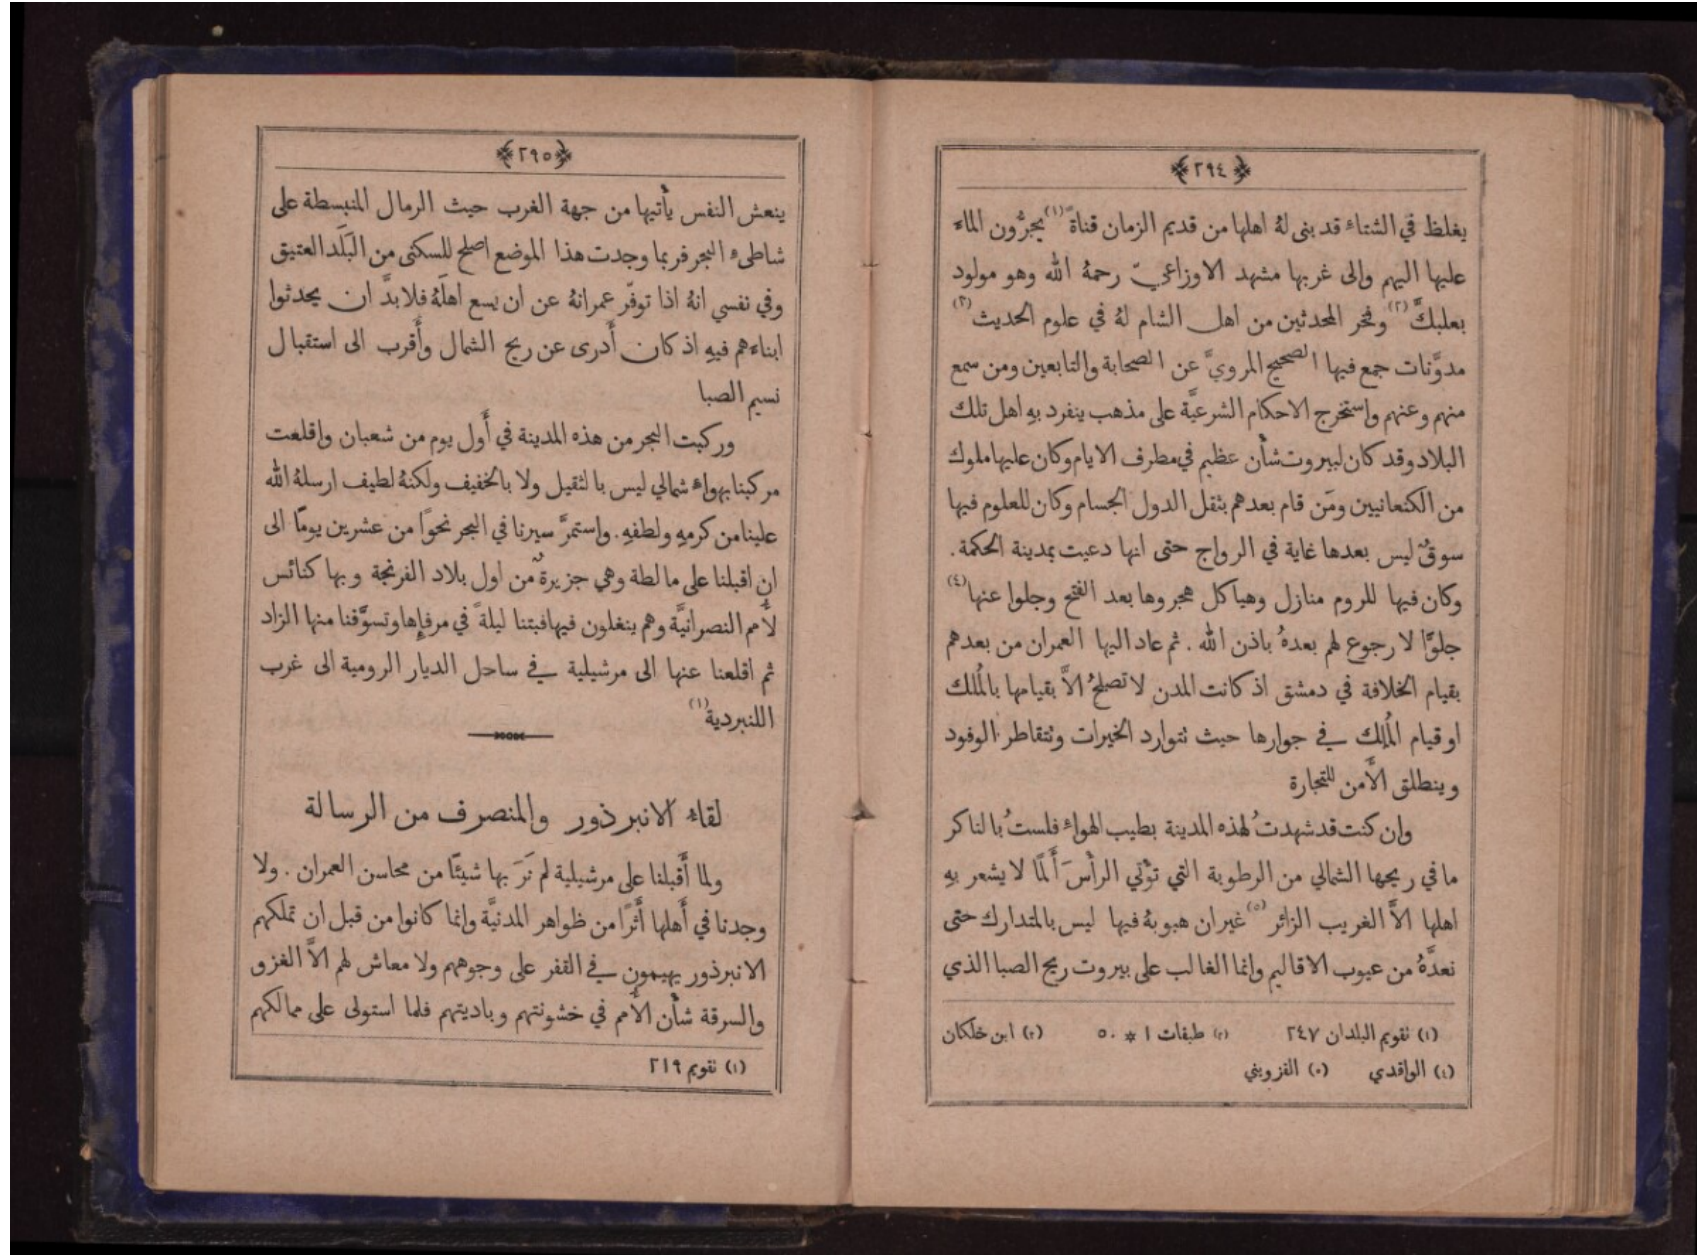 ﴿٢٩٤﴾
يغلظ في الشتاء قد بنى لهُ اهلها من قديم الزمان قناةً (١) يجرُّون الماء
عليها اليهم والى غربها مشهد الاوزاعيّ رحمهُ الله وهو مولود
بعلبكَّ (٢) وفخر المحدثين من اهل الشام لهُ في علوم الحديث (٣)
مدوَّنات جمع فيها الصحيح المرويَّ عن الصحابة والتابعين ومن سمع
منهم وعنهم واستخرج الاحكام الشرعيَّة على مذهب ينفرد بهِ اهل تلك
البلاد وقد كان لبيروت شأن عظيم في مطرف الايام وكان عليها ملوك
من الكنعانيين ومَن قام بعدهم بثقل الدول الجسام وكان للعلوم فيها
سوقٌ ليس بعدها غاية في الرواج حتى انها دعيت بمدينة الحكمة .
وكان فيها للروم منازل وهياكل هجروها بعد الفتح وجلوا عنها (٤)
جلوًّا لا رجوع لهم بعدهُ باذن الله . ثم عاد اليها العمران من بعدهم
بقيام الخلافة في دمشق اذ كانت المدن لا تصلحُ الاَّ بقيامها بالمُلك
او قيام المُلك في جوارها حيث نتوارد الخيرات ونتقاطر الوفود
وينطلق الأَمن للتجارة
وان كنت قد شهدتُ لهذه المدينة بطيب الهواء فلستُ بالناكر
ما في ريحها الشمالي من الرطوبة التي توْلي الرأْسَ أَلمًا لا يشعر بهِ
اهلها الاَّ الغريب الزائر (٥) غير ان هبوبهُ فيها ليس بالمتدارك حتى
نعدَّهُ من عيوب الاقاليم وانما الغالب على بيروت ريح الصبا الذي
(١) نقويم البلدان ٢٤٧ (٢) طبقات ١ * ٥٠ (٣) ابن خلكان
(٤) الواقدي (٥) القزويني
﴿٢٩٥﴾
ينعش النفس يأْتيها من جهة الغرب حيث الرمال المنبسطة على
شاطىء البحر فربما وجدت هذا الموضع اصلح للسكنى من البَلَد العتيق
وفي نفسي انهُ اذا توفّر عمرانهُ عن ان يسع اهلَهُ فلا بدَّ ان يحدثوا
ابناءهم فيهِ اذ كان أَدرى عن ريح الشمال وأَقرب الى استقبال
نسيم الصبا
وركبت البحر من هذه المدينة في أَول يوم من شعبان واقلعت
مركبنا بهواء شمالي ليس بالثقيل ولا بالخفيف ولكنهُ لطيف ارسلهُ الله
علينا من كرمهِ ولطفهِ . واستمرَّ سيرنا في البحر نحوًا من عشرين يومًا الى
ان اقبلنا على مالطة وهي جزيرةٌ من اول بلاد الفرنجة وبها كنائس
لأُمم النصرانيَّة وهم ينغلون فيها فبتنا ليلةً في مرفإِها وتسوَّقنا منها الزاد
ثم اقلعنا عنها الى مرشيلية في ساحل الديار الرومية الى غرب
اللنبردية (١)
لقاء الانبرذور والمنصرف من الرسالة
ولما أَقبلنا على مرشيلية لم نَرَ بها شيئًا من محاسن العمران . ولا
وجدنا في أَهلها أَثرًا من ظواهر المدنيَّة وانما كانوا من قبل ان تملكهم
الانبرذور يهيمون في القفر على وجوههم ولا معاش لهم الاَّ الغزو
والسرقة شأْن الأُمم في خشونتهم وباديتهم فلما استولى على ممالكهم
(١) نقويم ٢١٩